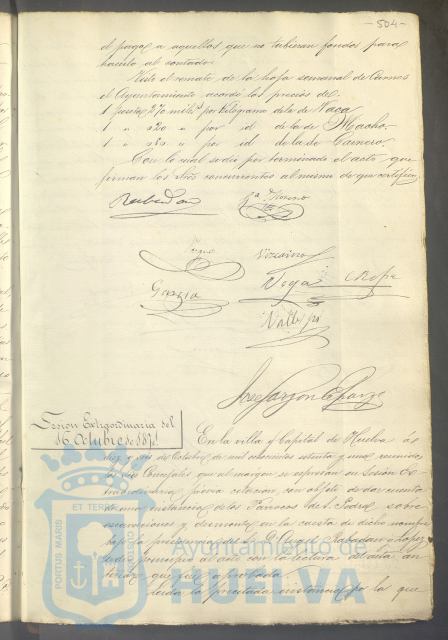 - 504 -
el pago a aquellos que no tubieran fondos para
hacerlo al contado.
Visto el remate de la hoja semanal de Carnes
el Ayuntamiento acordo los precios de:
1 peseta 270 mils. por Kilogramo de la de Vaca
1 " 020 " por id de la de Macho.
1 " 080 " por id de la de Carnero.
Con lo cual se dio por terminado el acto que
firman los Sres concurrentes al mismo de que certifico.
Rabadan Moreno
Vizcaino
Garcia Vega
Valle
Jose Garzon
Sesion Extraordinaria del
16 Octubre de 1871
En la villa y Capital de Huelva á
diez y seis de Octubre de mil ochocientos setenta y uno reunidos
los Sres Concejales que al margen se espresan en Sesion Ex-
traordinaria previa citacion con objeto de dar cuenta
de una instancia de los Parrocos de S. Pedro sobre
escavaciones y desmonte en la cuesta de dicho nombre
bajo la presidencia del Sr D. Rabadan y Lopez
se dio principio al acto con la lectura del acta an
terior que fue aprobada.
Leida la precitada instancia por la que
PORTUS MARIS
ET TERRAE
CUSTODIO
Ayuntamiento de
HUELVA